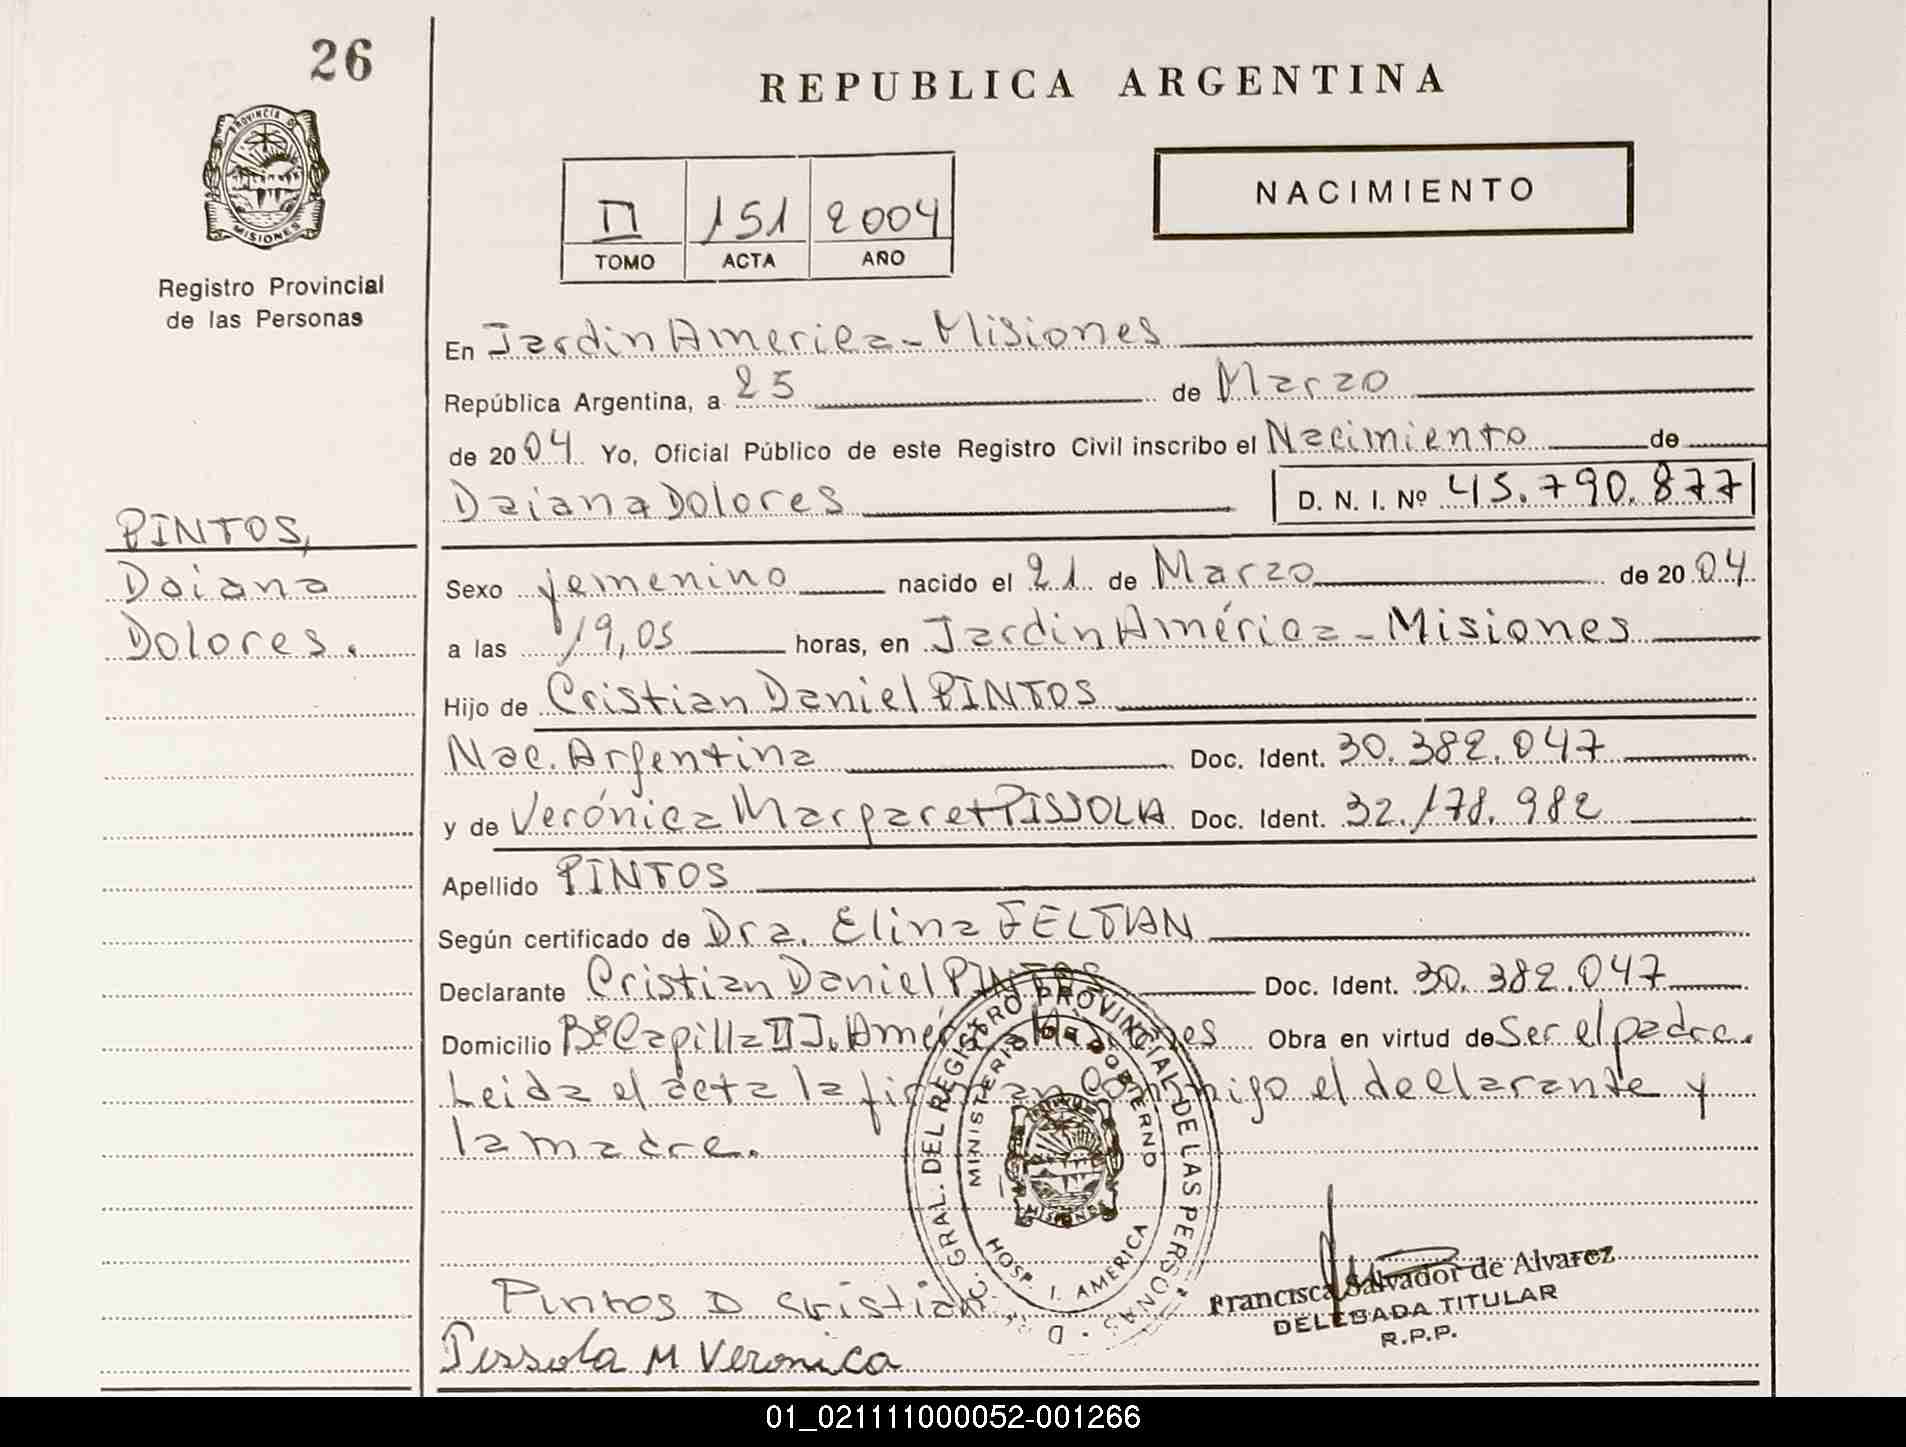 26
REPUBLICA ARGENTINA
PROVINCIA D
MISIONES
Registro Provincial
de las Personas
II 151 2004
TOMO ACTA AÑO
NACIMIENTO
En Jardin America - Misiones
República Argentina, a 25 de Marzo
de 2004 Yo, Oficial Público de este Registro Civil inscribo el Nacimiento de
Daiana Dolores D. N. I. Nº 45.790.877
PINTOS,
Daiana
Dolores.
Sexo femenino nacido el 21 de Marzo de 2004
a las 19,05 horas, en Jardin América - Misiones
Hijo de Cristian Daniel PINTOS
Nac. Argentina Doc. Ident. 30.382.047
y de Verónica Margaret PISSOLA Doc. Ident. 32.178.982
Apellido PINTOS
Según certificado de Dra. Elina FELTAN
Declarante Cristian Daniel PINTOS Doc. Ident. 30.382.047
Domicilio Bº Capilla II J. América Misiones Obra en virtud de Ser el padre.
Leida el acta la firman conmigo el declarante y
la madre.
GRAL. DEL REGISTRO PROVINCIAL DE LAS PERSONAS
MINISTERIO DE GOBIERNO
MISIONES
HOSP. I. AMERICA
Pintos D Cristian
Pissola M Veronica
Francisca Salvador de Alvarez
DELEGADA TITULAR
R.P.P.
01_021111000052-001266